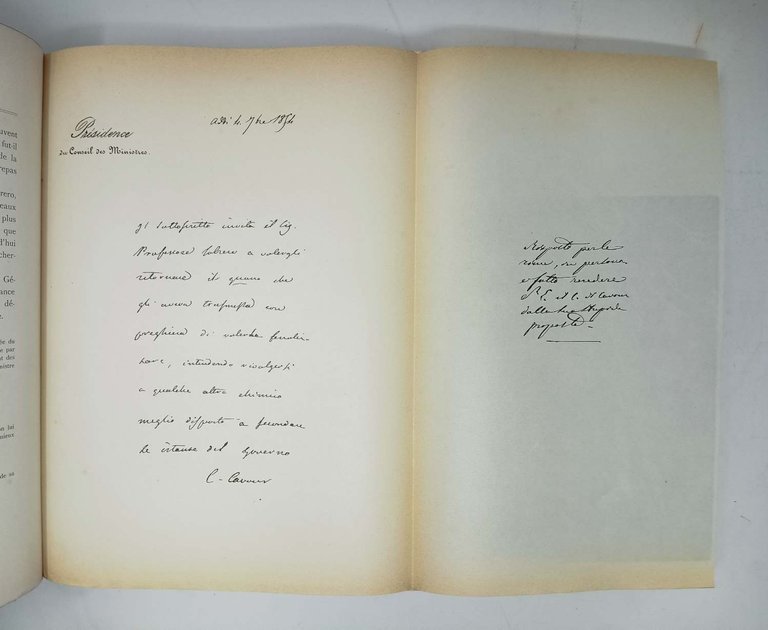 uvent
fut-il
de la
repas
rero,
eaux
plus
que
d'hui
cher-
Gé-
ance
dé-
e.
ée du
e par
nt des
nistre
on lui
mieux
de sa
Présidence
du Conseil des Ministres.
Il sottoscritto invita il Sig.
Professore Sobrero a volergli
ritornare il guano che
gli aveva trasmesso con
preghiera di volerlo
intendendo rivolgersi
a qualche altro chimico
meglio disposto a secondare
le istanze del Governo
C. Cavour
Risposto per le
rime, di persona
e fatto recedere
S. E. il C. di Cavour
dalla sua
proposta -